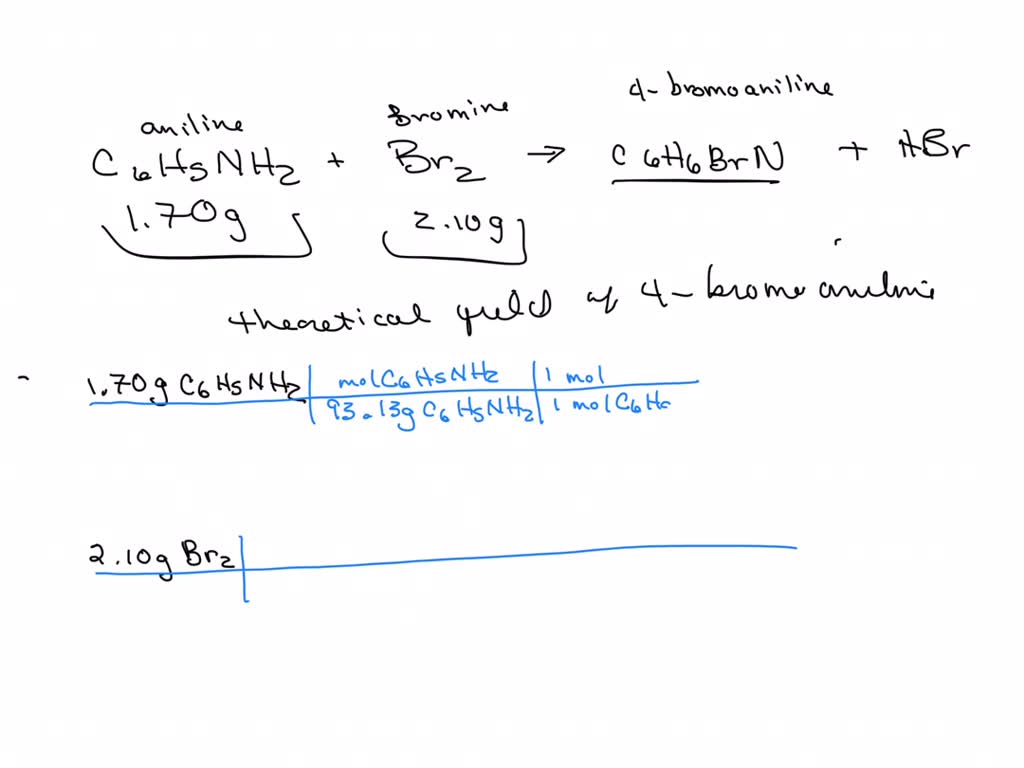 4-bromoaniline
aniline bromine
C6H5NH2 + Br2 → C6H6BrN + HBr
1.70g 2.10g
theoretical yield of 4-bromoaniline
1.70g C6H5NH2 | molC6H5NH2 | 1 mol
93.13g C6H5NH2 | 1 molC6H
2.10g Br2